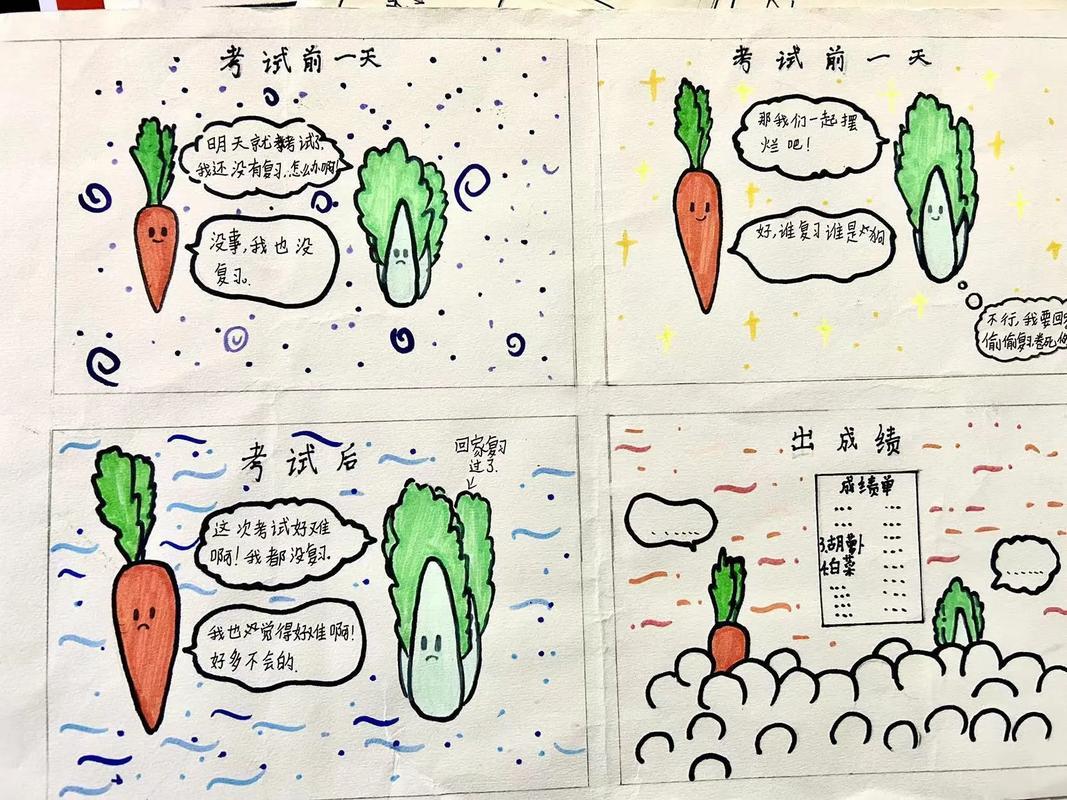 考试前一天
明天就考试了
我还没有复习,怎么办啊
没事,我也没
复习.
考试前一天
那我们一起摆
烂吧!
好,谁复习谁是狗
不行,我要回
偷偷复习卷死
考试后
回家复习
过了.
这次考试好难
啊!我都没复习.
我也觉得好难啊!
好多不会的.
出成绩
成绩单
胡萝卜
白菜